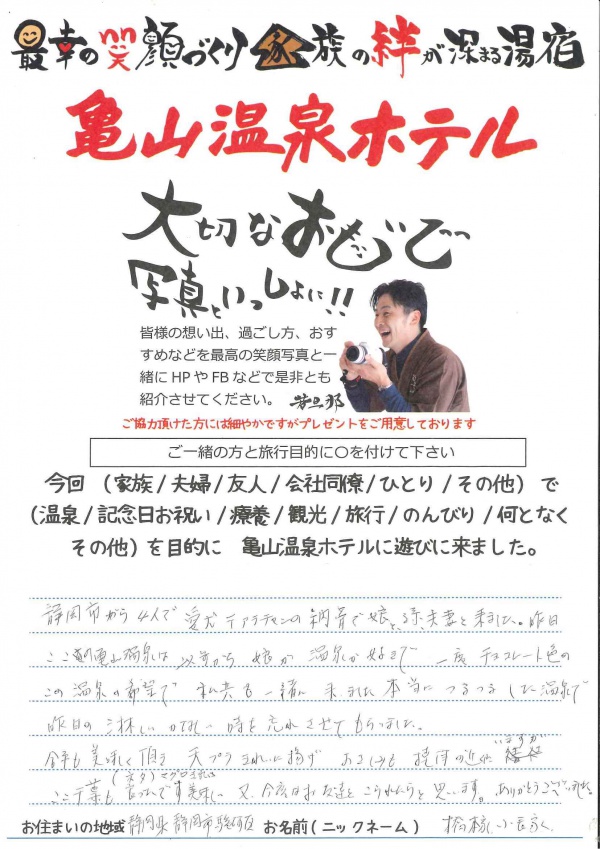 最幸の笑顔づくり 家族の絆が深まる湯宿
亀山温泉ホテル
大切なおもいで
写真といっしょに!!
皆様の想い出、過ごし方、おす
すめなどを最高の笑顔写真と一
緒に HP や FB などで是非とも
紹介させてください。 若旦那
ご協力頂けた方には細やかですがプレゼントをご用意しております
ご一緒の方と旅行目的に〇を付けて下さい
今回 (家族/夫婦/友人/会社同僚/ひとり/その他) で
(温泉/記念日お祝い/療養/観光/旅行/のんびり/何となく
その他) を目的に 亀山温泉ホテルに遊びに来ました。
静岡市から 4人で 愛犬 の納骨で娘と 夫妻と来ました。昨日
亀山温泉は 以前から 娘が 温泉が好きで 一度 チョコレート色の
この温泉の希望で 私共も一緒に 来ました 本当に つるつるした温泉で
昨日の 淋しい 時を 忘れさせてもらいました。
美味しく頂き 天プラ
千葉も 美味しい 又、今度はお友達と こられたらと思います。ありがとうございました
お住まいの地域 静岡県静岡市駿河区 お名前(ニックネーム)